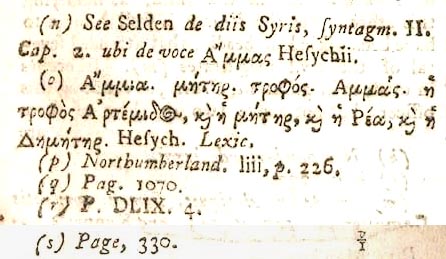 (n) See Selden de diis Syris, ſyntagm. II.
Cap. 2. ubi de voce Ἄμμας Heſychii.
(o) Ἄμμια. μήτηρ. τροφός. Αμμάς. ἡ
τροφὸς Ἀρτέμιδος, καὶ ἡ μήτηρ, καὶ ἡ Ρέα, καὶ ἡ
Δημήτηρ. Heſych. Lexic.
(p) Northumberland. liii, p. 226.
(q) Pag. 1070.
(r) P. DLIX. 4.
(s) Page, 330.